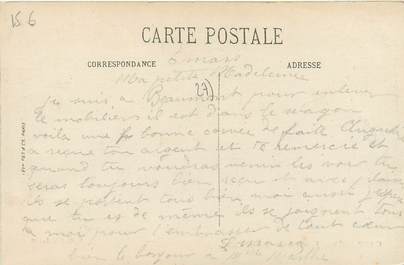 15 6
CARTE POSTALE
CORRESPONDANCE
ADRESSE
5 mars
Ma petite Madeleine
27)
je suis a Beaumont pour enlever
le mobilier il est dans le wagon
voila une bonne corvée de faite Auguste
a reçue ton argent et te remercie et
quand tu voudras venir les voir tu
seras toujours bien reçu et avec plaisir
ils se portent tous bien moi aussi j'espère
que tu es de même ils se joignent tous
a moi pour t'embrasser de tout cœur
bien le bonjour a Mme